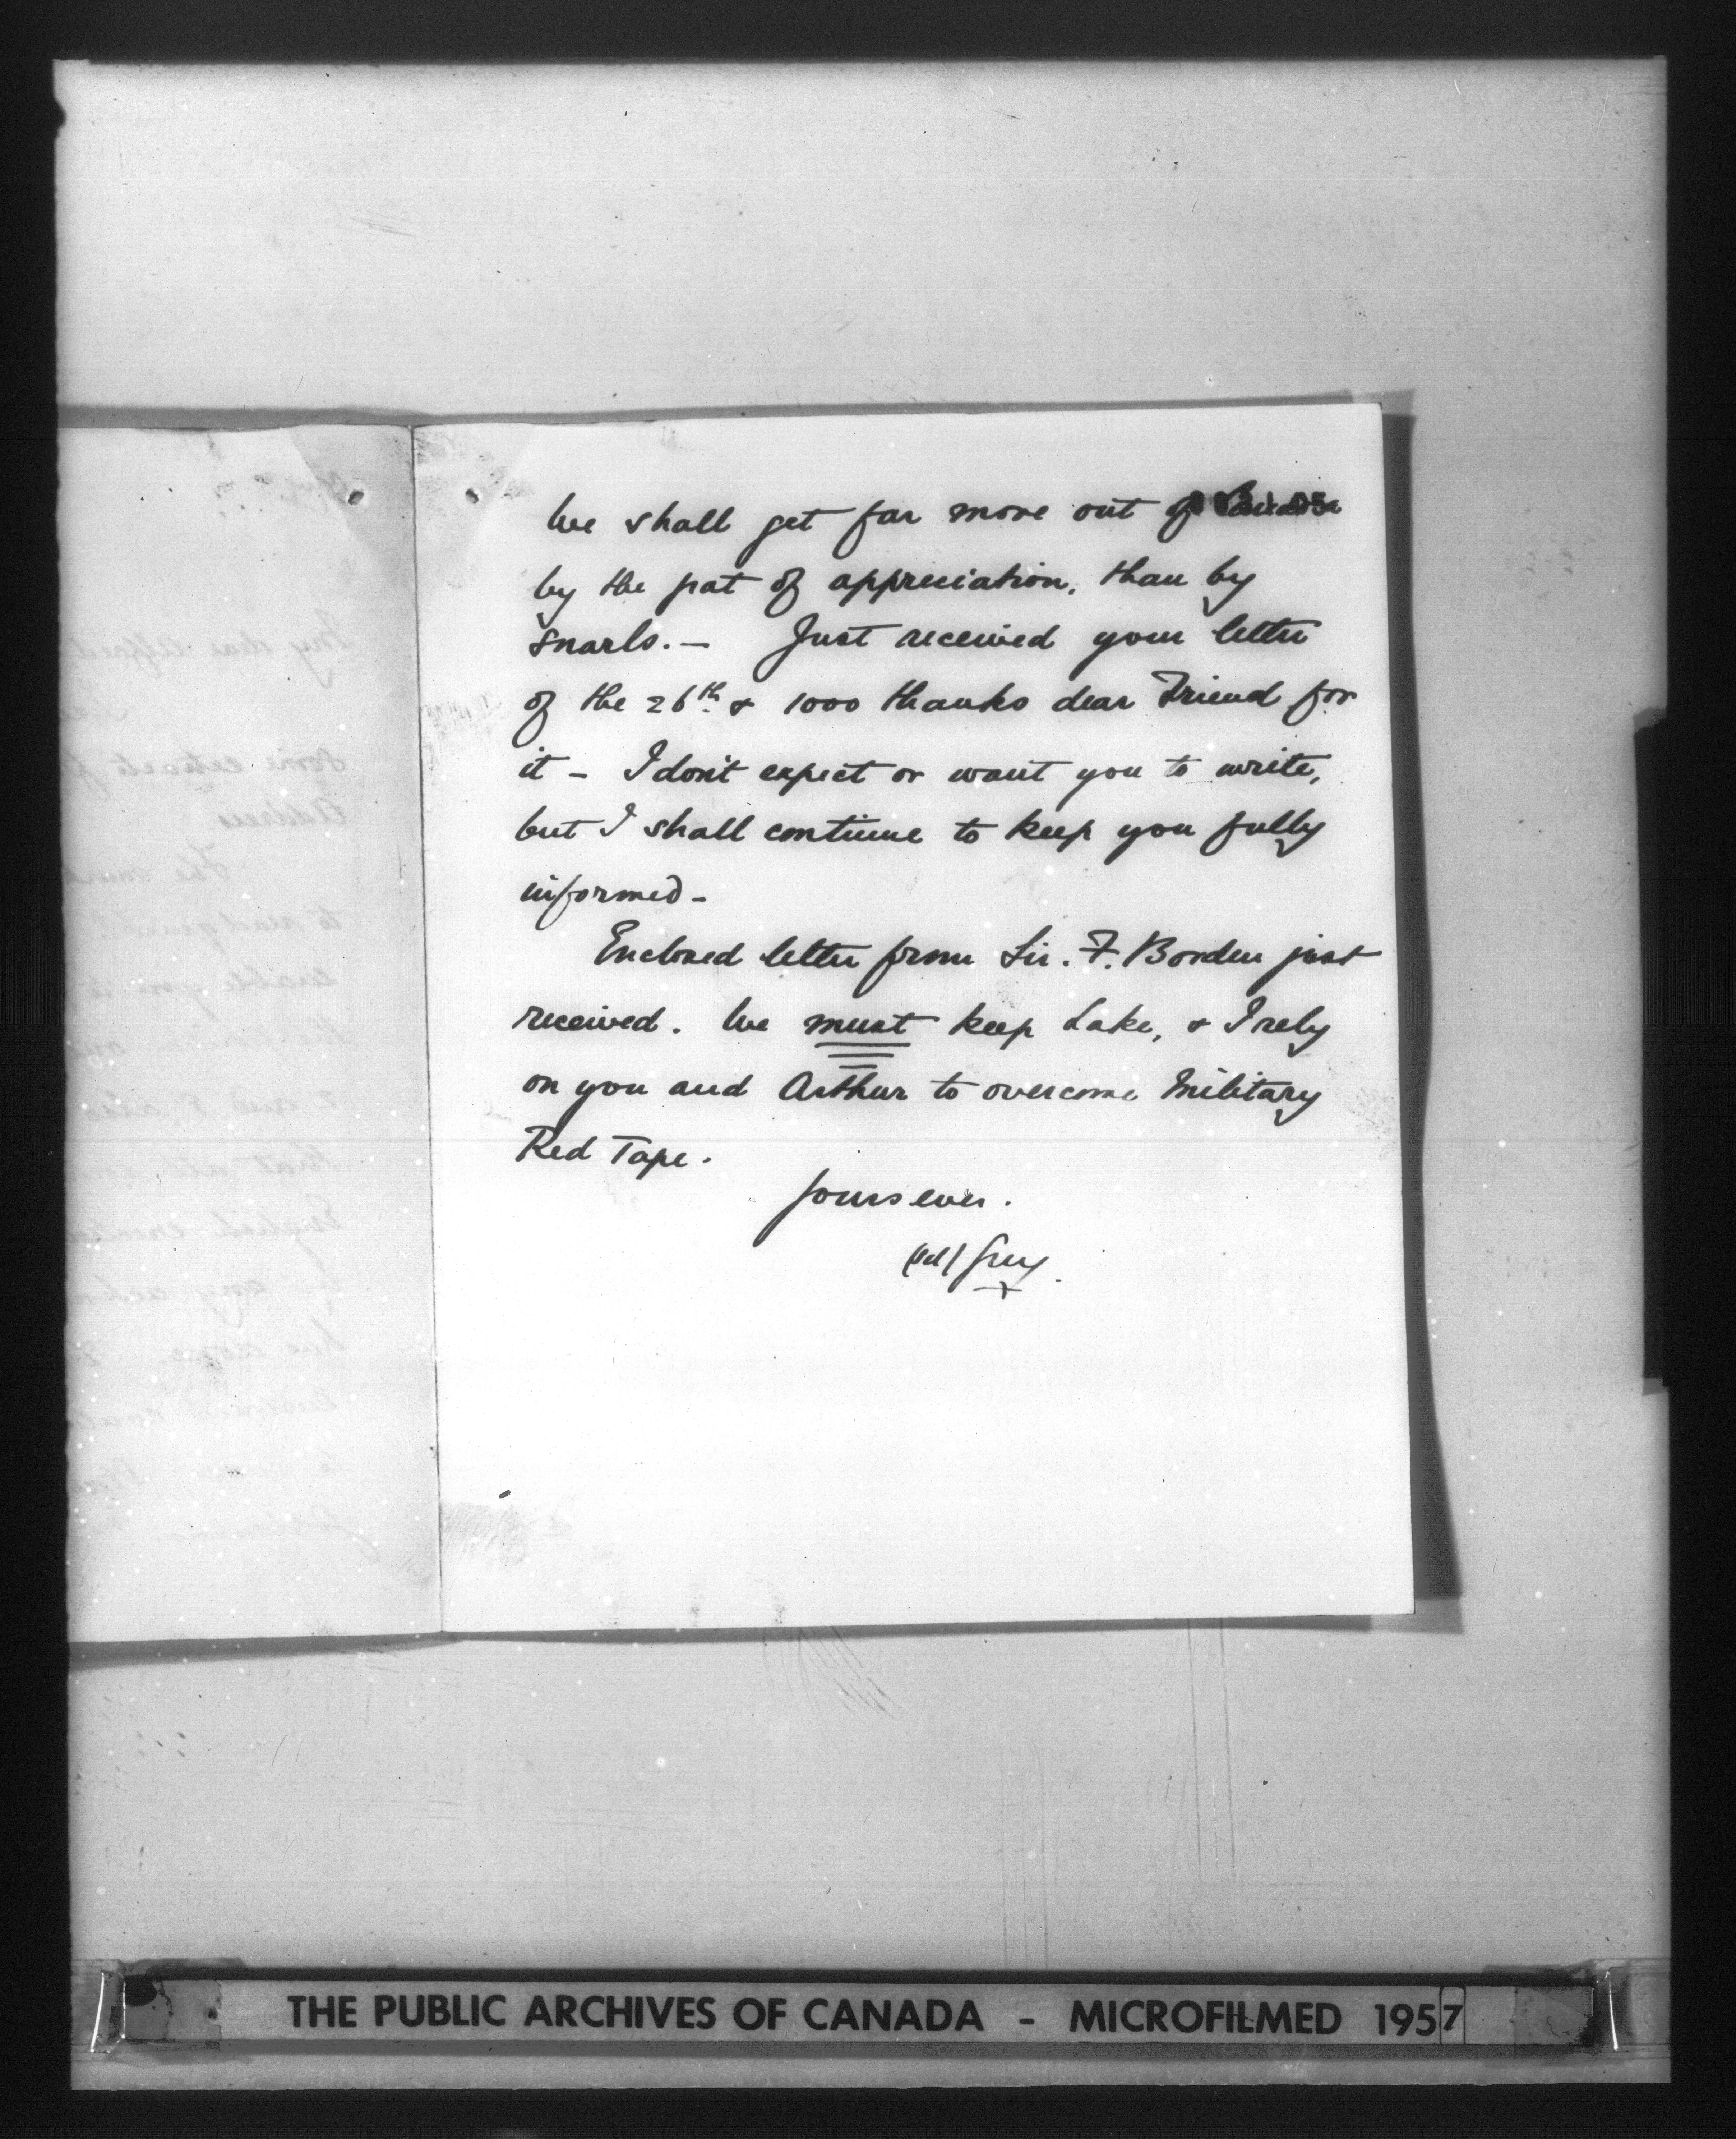 We shall get far more out of Canada
by the pat of appreciation, than by
snarls. — Just received your letter
of the 26th. & 1000 thanks dear Friend for
it — I don't expect or want you to write,
but I shall continue to keep you fully
informed —
Enclosed letter from Sir. F. Borden just
received. We must keep Lake, & I rely
on you and Arthur to overcome Military
Red Tape.
Yours ever.
(sd) Grey.
THE PUBLIC ARCHIVES OF CANADA - MICROFILMED 1957